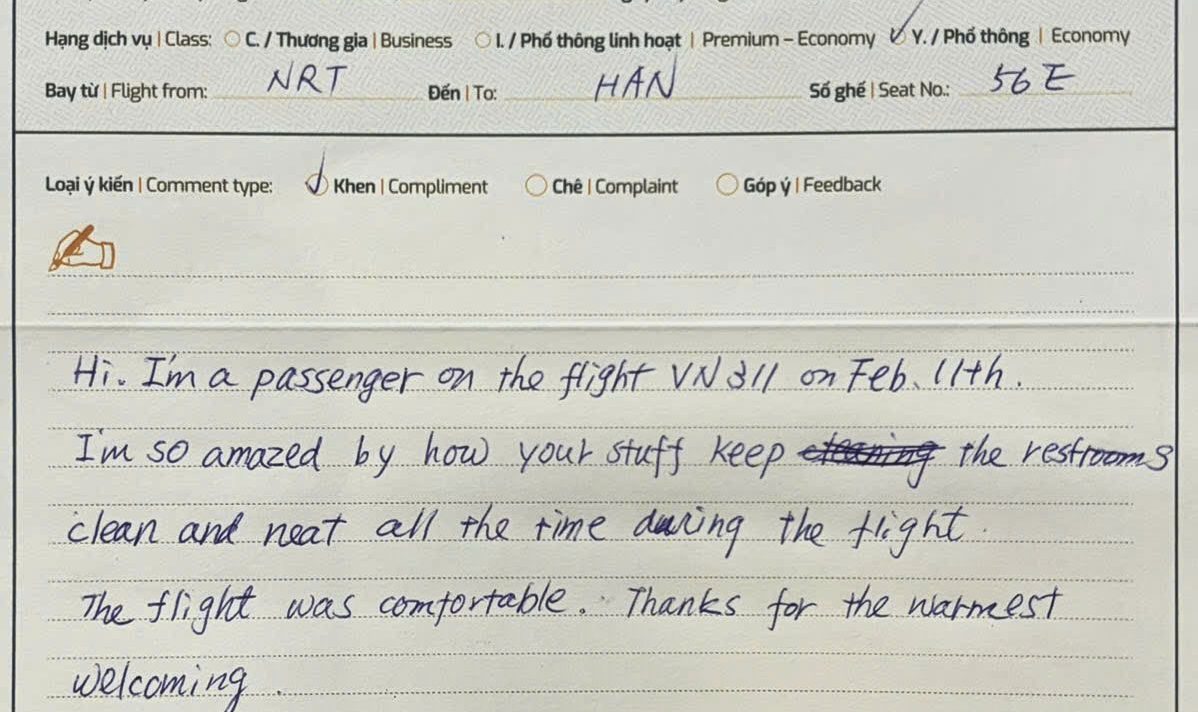 Hạng dịch vụ | Class: C. / Thương gia | Business I. / Phổ thông linh hoạt | Premium – Economy Y. / Phổ thông | Economy
Bay từ | Flight from: NRT Đến | To: HAN Số ghế | Seat No.: 56E
Loại ý kiến | Comment type: Khen | Compliment Chê | Complaint Góp ý | Feedback
Hi. I'm a passenger on the flight VN311 on Feb. 11th.
I'm so amazed by how your stuff keep the restrooms
clean and neat all the time during the flight.
The flight was comfortable. Thanks for the warmest
welcoming.